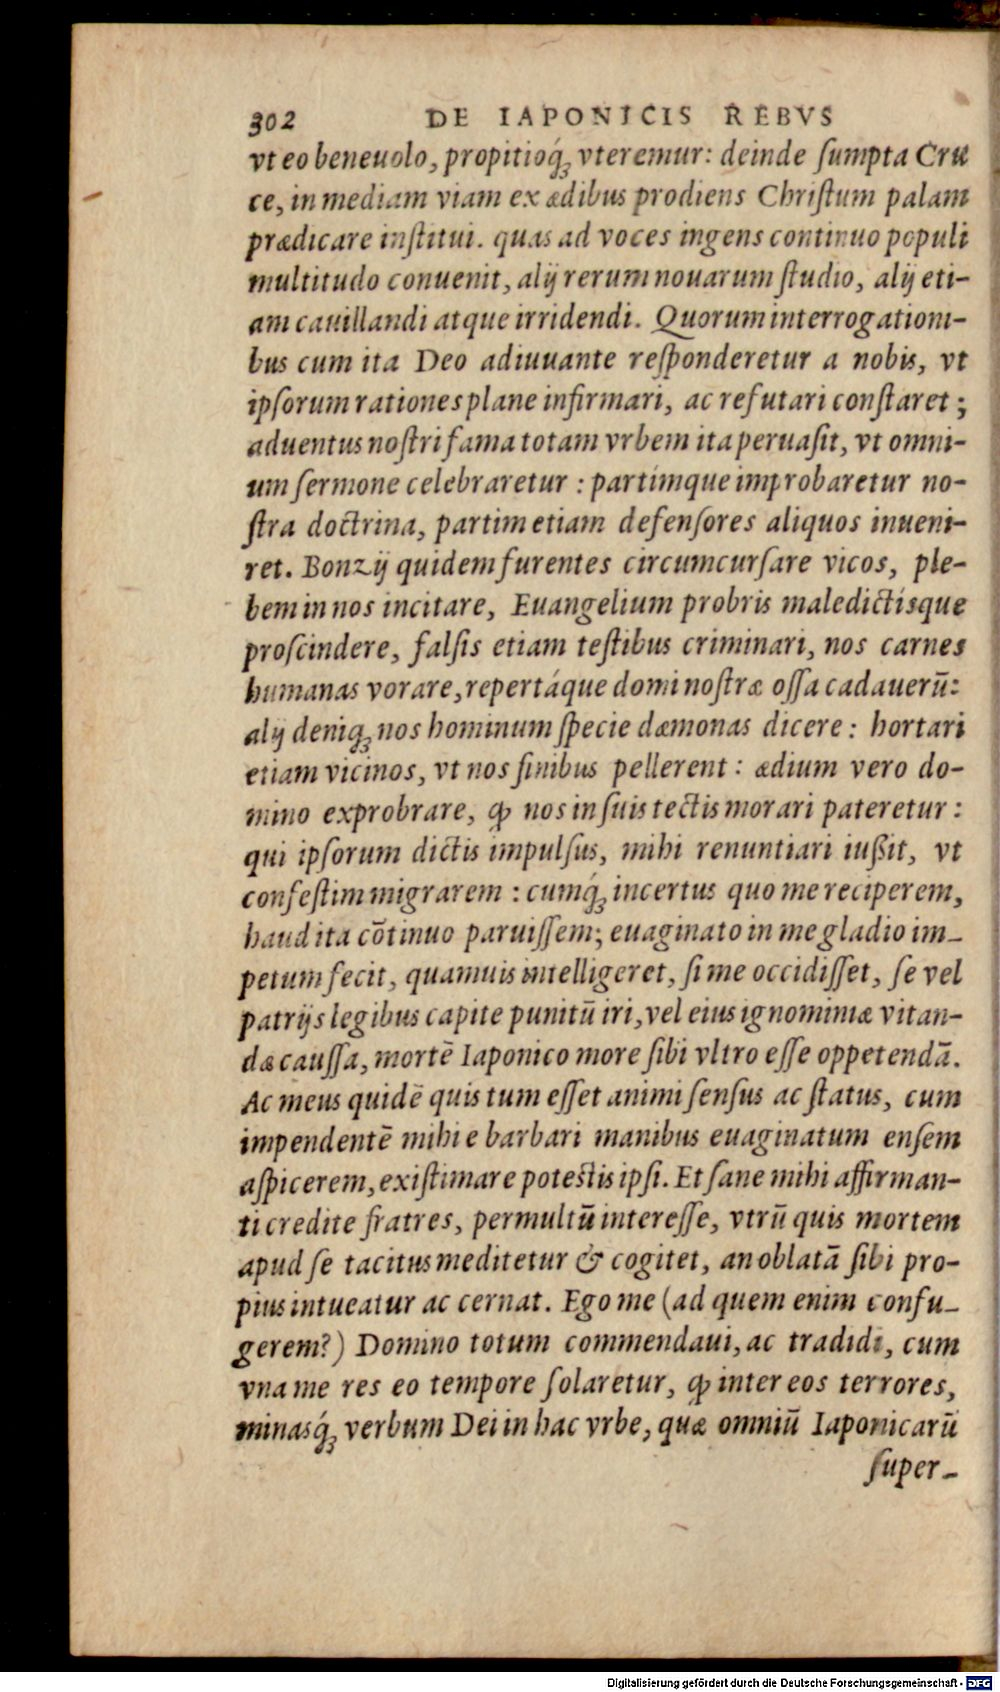 302 DE IAPONICIS REBVS
vt eo beneuolo, propitioq́ꝫ vteremur: deinde ſumpta Cru
ce, in mediam viam ex ædibus prodiens Chriſtum palam
prædicare inſtitui. quas ad voces ingens continuo populi
multitudo conuenit, alij rerum nouarum ſtudio, alij eti-
am cauillandi atque irridendi. Quorum interrogationi-
bus cum ita Deo adiuuante reſponderetur a nobis, vt
ipſorum rationes plane infirmari, ac refutari conſtaret;
aduentus noſtri fama totam vrbem ita peruaſit, vt omni-
um ſermone celebraretur: partímque improbaretur no-
ſtra doctrina, partim etiam defenſores aliquos inueni-
ret. Bonzij quidem furentes circumcurſare vicos, ple-
bem in nos incitare, Euangelium probris maledictísque
proſcindere, falſis etiam teſtibus criminari, nos carnes
humanas vorare, repertáque domi noſtræ oſſa cadauerū:
alij deniqꝫ nos hominum ſpecie dæmonas dicere: hortari
etiam vicinos, vt nos finibus pellerent: ædium vero do-
mino exprobrare, ꝙ nos in ſuis tectis morari pateretur:
qui ipſorum dictis impulſus, mihi renuntiari iußit, vt
confeſtim migrarem: cumq́ꝫ incertus quo me reciperem,
haud ita cōtinuo paruiſſem; euaginato in me gladio im-
petum fecit, quamuis intelligeret, ſi me occidiſſet, ſe vel
patrijs legibus capite punitū iri, vel eius ignominiæ vitan-
dæ cauſſa, mortē Iaponico more ſibi vltro eſſe oppetendā.
Ac meus quidē quis tum eſſet animi ſenſus ac ſtatus, cum
impendentē mihi e barbari manibus euaginatum enſem
aſpicerem, exiſtimare poteſtis ipſi. Et ſane mihi affirman-
ti credite fratres, permultū intereſſe, vtrū quis mortem
apud ſe tacitus meditetur & cogitet, an oblatā ſibi pro-
pius intueatur ac cernat. Ego me (ad quem enim confu-
gerem?) Domino totum commendaui, ac tradidi, cum
vna me res eo tempore ſolaretur, ꝙ inter eos terrores,
minasq́ꝫ verbum Dei in hac vrbe, quæ omniū Iaponicarū
ſuper-
Digitalisierung gefördert durch die Deutsche Forschungsgemeinschaft - DFG